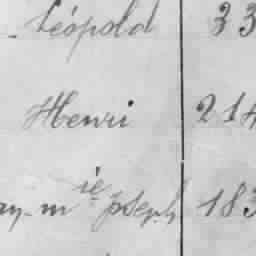 Léopold 33
Henri 214
m ie joseph 183